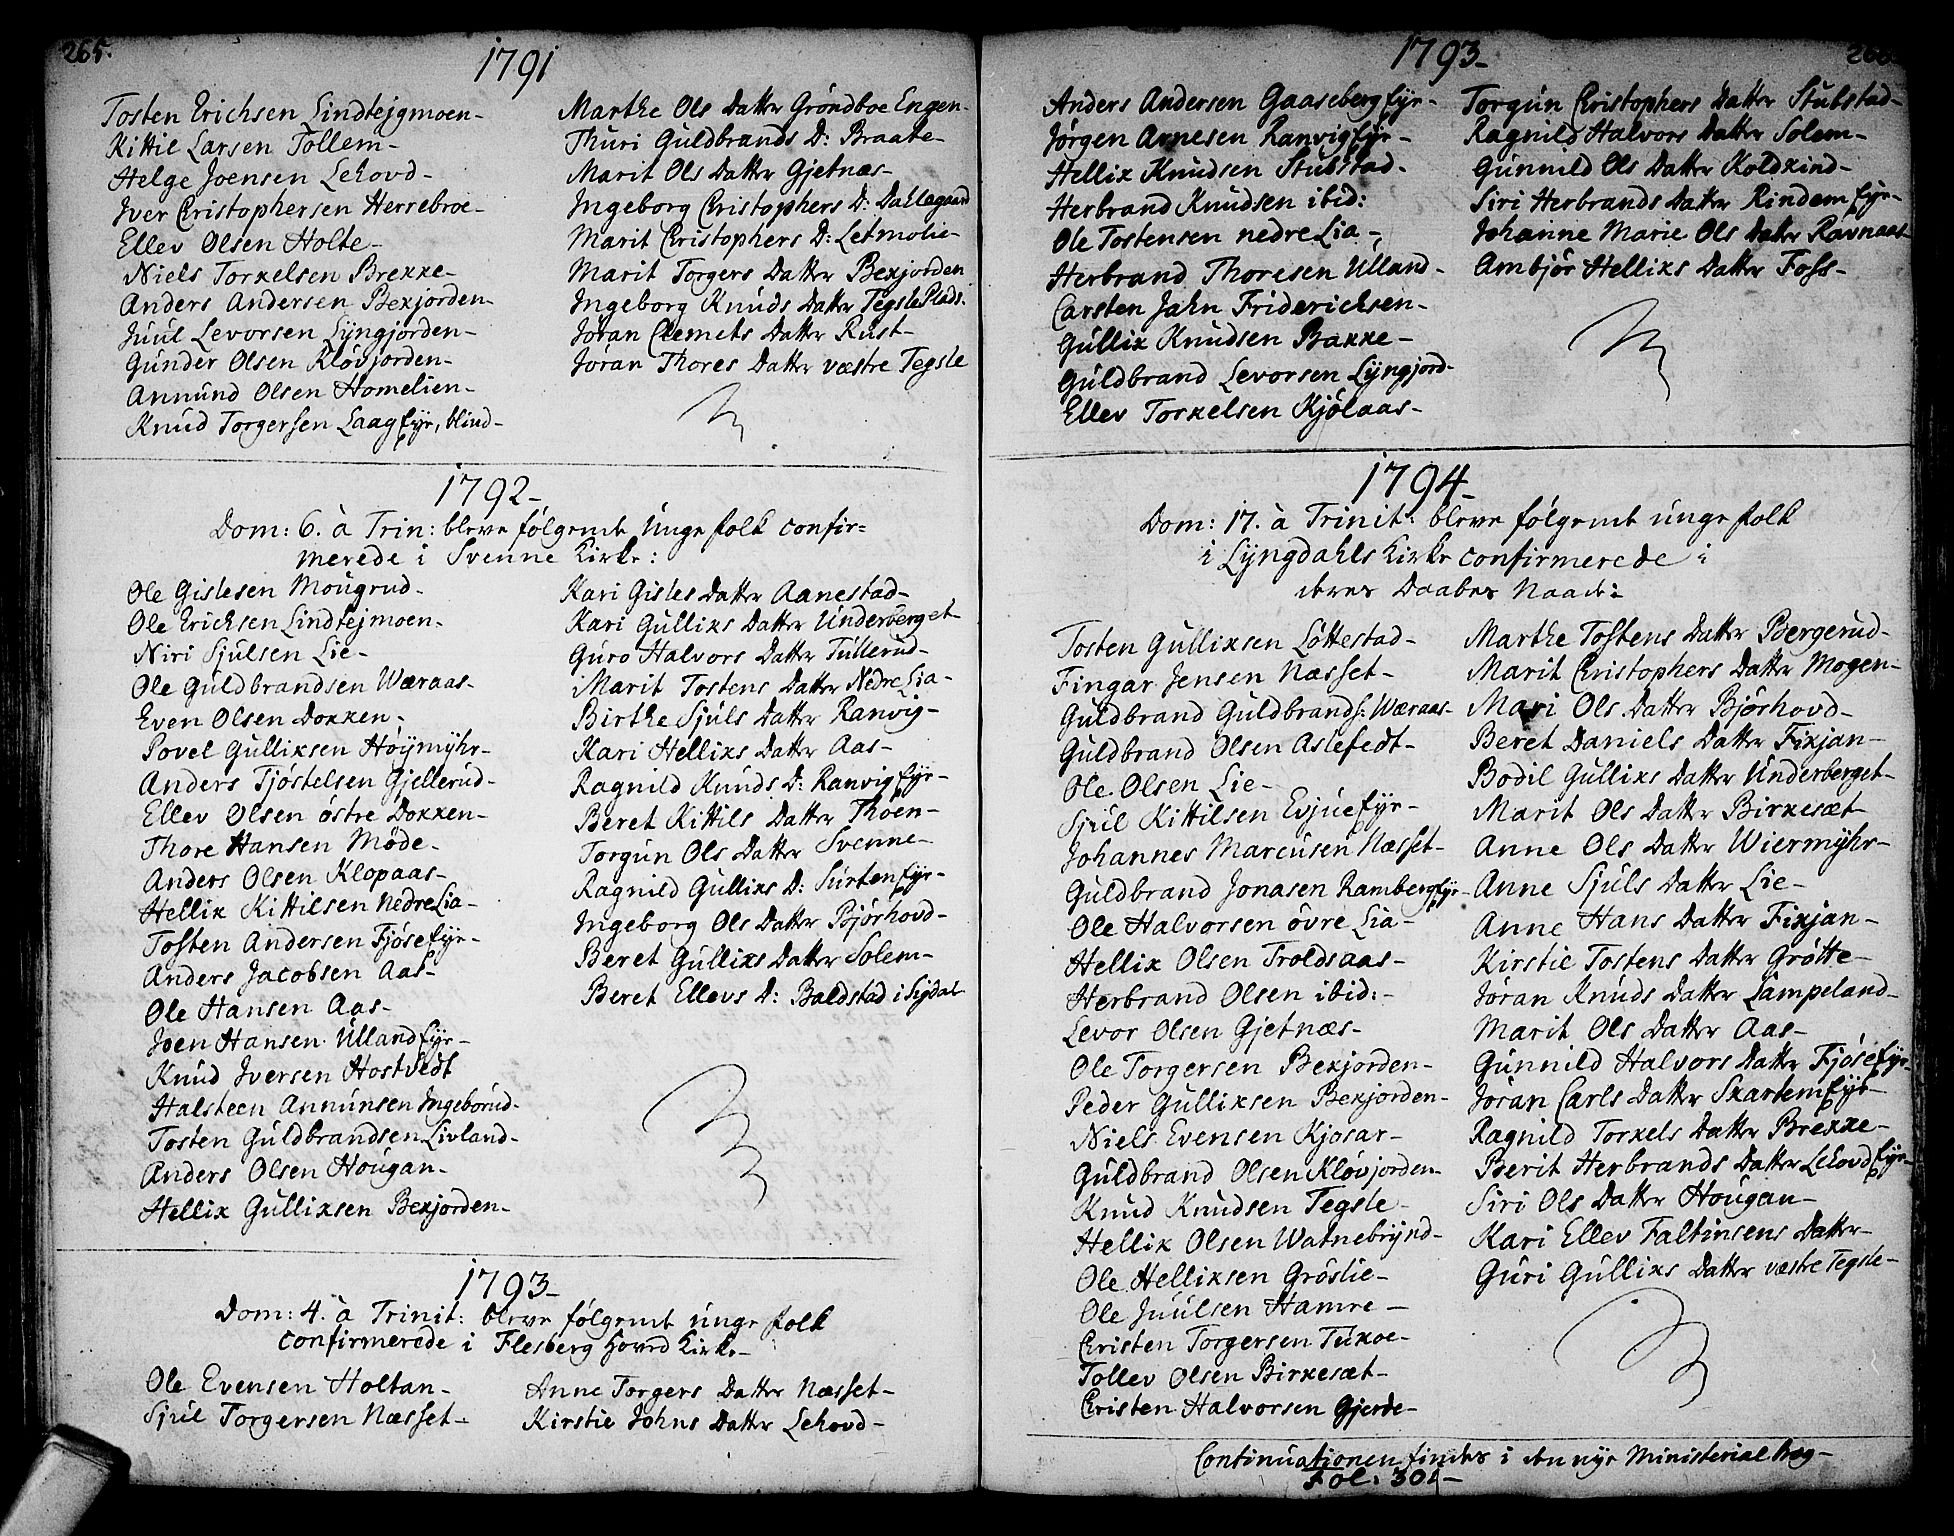 265.
1791
Tosten Erichsen Lindtejgmoen-
Kittil Larsen Tollem-
Helge Joensen Lehovd-
Jver Christophersen Herrebroe-
Ellev Olsen Holte-
Niels Torkelsen Brekke-
Anders Andersen Bekjorden-
Juul Levorsen Lyngjorden-
Gunder Olsen Kløvjorden-
Annund Olsen Homelien-
Knud Torgersen Laagfyr, blind-
Marthe Ols Datter Grøndboe Engen-
Thuri Guldbrands D: Braate-
Marit Ols Datter Gjetnæs-
Jngeborg Christophers D: Dahlegaard
Marit Christophers D: Letmolie-
Marit Torgers Datter Bekjorden
Jngeborg Knuds Datter Tegsle Plads.
Jøran Clemets Datter Rust-
Jøran Thores Datter væstre Tegsle
1792-
Dom: 6. à Trin: bleve følgende Unge folk confir=
merede i Svenne Kirke:
Ole Gislesen Mougrud-
Ole Erichsen Lindtejmoen-
Niri Sjulsen Lie-
Ole Guldbrandsen Wæraas-
Even Olsen Dokken-
Povel Gulliksen Høymyhr-
Anders Tjøstelsen Gjellerud-
Ellev Olsen østre Dokken-
Thore Hansen Møde-
Anders Olsen Klopaas-
Hellik Kittilsen Nedre Lia-
Tosten Andersen Fjøsefyr-
Anders Jacobsen Aas-
Ole Hansen Aas-
Joen Hansen Ullandfyr-
Knud Jversen Hostvedt
Halsteen Annunsen Jngeborud-
Tosten Guldbrandsen Livland-
Anders Olsen Hougan-
Hellik Gulliksen Bekjorden-
Kari Gisles Datter Aanestad-
Kari Gulliks Datter Underberget-
Guro Halvors Datter Tullerud-
Marit Tostens Datter Nedre Lia-
Birthe Sjuls Datter Ranvig-
Kari Helliks Datter Aas-
Ragnild Knuds D: Ranvigfyr-
Beret Kittils Datter Thoen-
Torgun Ols Datter Svenne-
Ragnild Gulliks D: Surtenfyr-
Jngeborg Ols Datter Bjørhovd-
Beret Gulliks Datter Solem-
Beret Ellevs D: Baldstad i Sigdal-
1793-
Dom: 4. à Trinit: bleve følgende unge folk
confirmerede i Flesberg Hoved Kirke-
Ole Evensen Holtan-
Sjul Torgersen Næsset-
Anne Torgers Datter Næsset-
Kirstie Johns Datter Lehovd-
1793-
Anders Andersen Gaasebergfyr-
Jørgen Arnesen Ranvigfyr-
Hellik Knudsen Stubstad-
Herbrand Knudsen ibid:
Ole Tostensen nedre Lia-
Herbrand Thoresen Ulland-
Carsten Jahn Friderichsen-
Gullik Knudsen Bakke-
Guldbrand Levorsen Lyngjord-
Ellev Torkelsen Kjølaas-
Torgun Christophers Datter Stubstad-
Ragnild Halvors Datter Solem-
Gunnild Ols Datter Koldkind-
Siri Herbrands Datter Rindemfyr-
Johanne Marie Ols Datter Ravnaas-
Ambjør Helliks Datter Foss-
1794-
Dom: 17. à Trinit: bleve følgende unge folk
i Lyngdahls Kirke confirmerede i
deres Daabes Naade:
Tosten Gulliksen Løttestad-
Fingar Jensen Næsset-
Guldbrand Guldbrands: Wæraas-
Guldbrand Olsen Aslefedt-
Ole Olsen Lie-
Sjul Kittilsen Evjuefyr-
Johannes Marcusen Næsset-
Guldbrand Jonasen Rambergfyr-
Ole Halvorsen øvre Lia-
Hellik Olsen Troldsaas-
Herbrand Olsen ibid:-
Levor Olsen Gjetnæs-
Ole Torgersen Bekjorden-
Peder Gulliksen Bekjorden-
Niels Evensen Kjosar-
Guldbrand Olsen Kløvjorden-
Knud Knudsen Tegsle-
Hellik Olsen Watnebrynd-
Ole Helliksen Grøslie-
Ole Juulsen Hamre-
Christen Torgersen Tukoe-
Tollev Olsen Birkesæt-
Christen Halvorsen Gjerde-
Marthe Tostens Datter Bergerud-
Marit Christophers Datter Mogen-
Mari Ols Datter Bjørhovd-
Beret Daniels Datter Fikjan-
Bodil Gulliks Datter Underberget-
Marit Ols Datter Birkesæt
Anne Ols Datter Wiermyhr-
Anne Sjuls Datter Lie-
Anne Hans Datter Fikjan-
Kirstie Tostens Datter Grøtte-
Jøran Knuds Datter Lampeland-
Marit Ols Datter Aas-
Gunnild Halvors Datter Fjøsefyr-
Jøran Carls Datter Skartemfyr-
Ragnild Torkels Datter Brekke-
Berit Herbrands Datter Lehovdfyr-
Siri Ols Datter Hougan-
Kari Ellev Faltinsens Datter-
Guri Gulliks Datter væstre Tegsle-
Continuationen findes i den nye Ministerial bog-
Fol: 301-